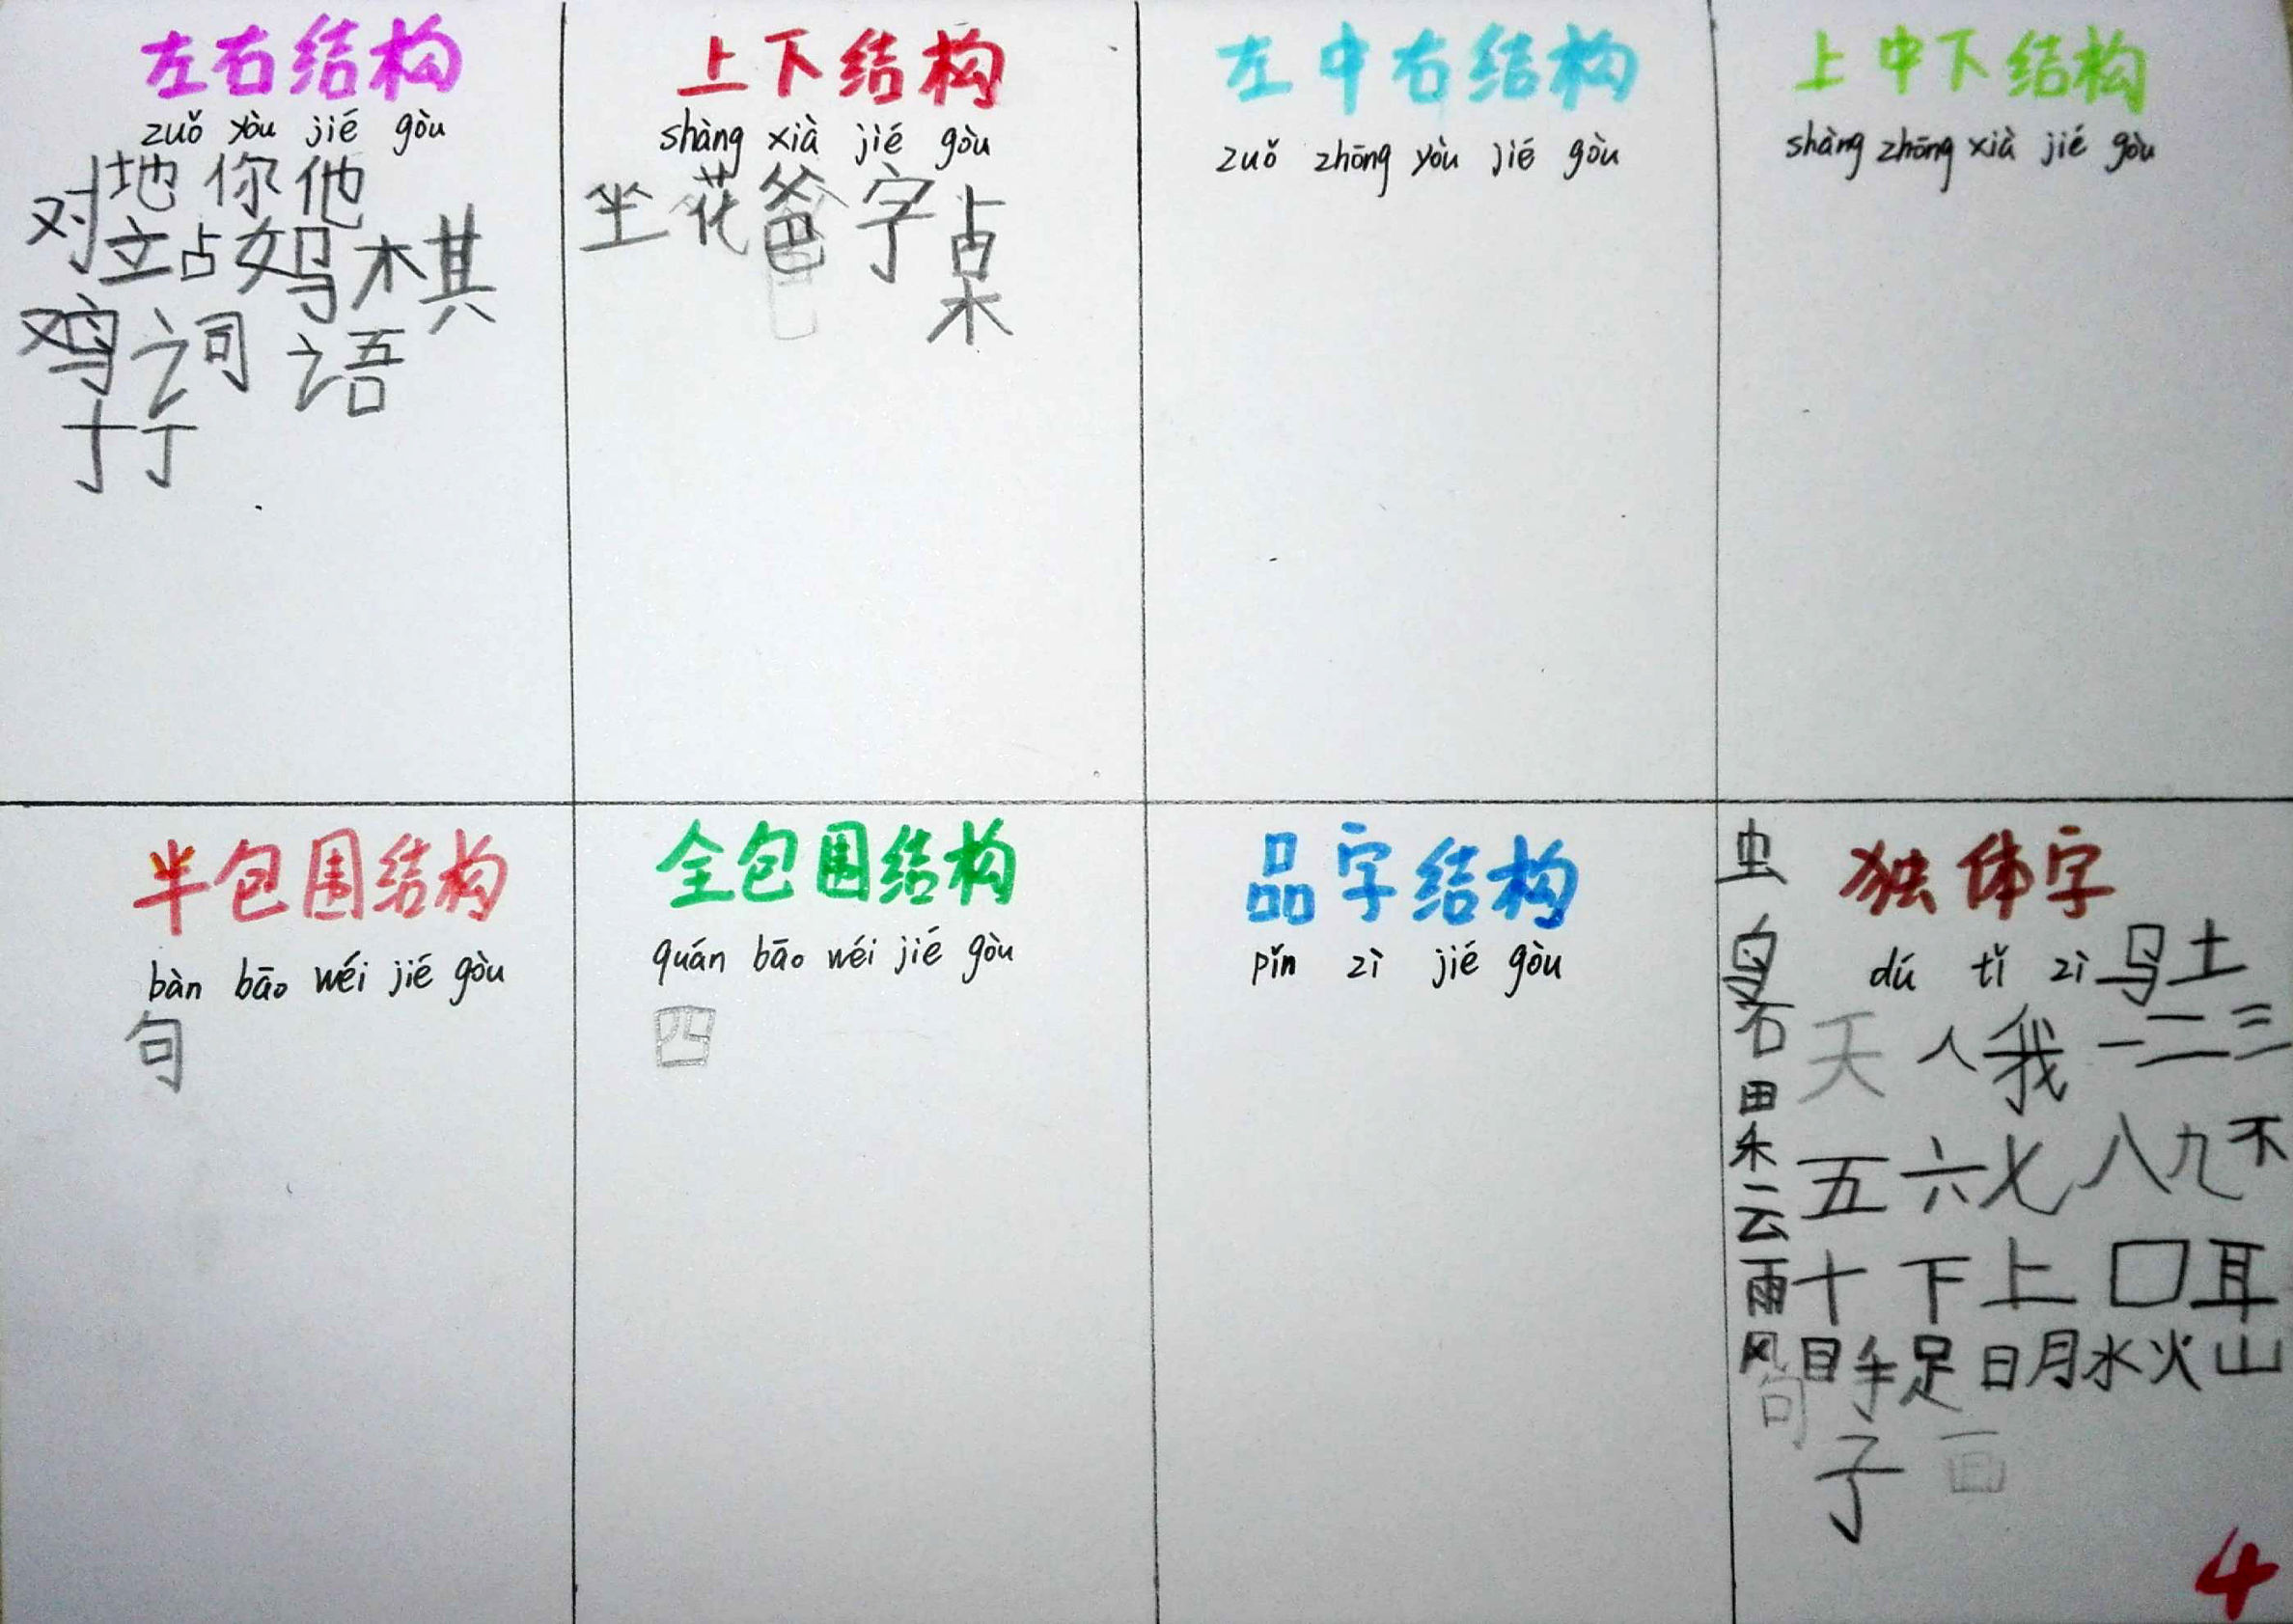 左右结构
zuǒ yòu jié gòu
对地你他
站妈棋
鸡词语
打
上下结构
shàng xià jié gòu
坐花爸字桌
左中右结构
zuǒ zhōng yòu jié gòu
上中下结构
shàng zhōng xià jié gòu
半包围结构
bàn bāo wéi jié gòu
句
全包围结构
quán bāo wéi jié gòu
四
品字结构
pǐn zì jié gòu
独体字
dú tǐ zì
马土
天人我一二三
五六七八九不
十下上口耳
目手足日月水火山
子画
虫
鸟
石
田
禾
云
雨
风
句
4